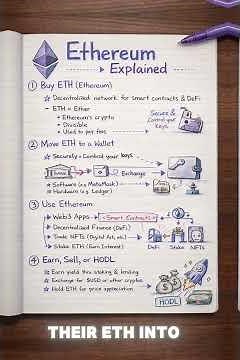 Ethereum
Explained
① Buy ETH (Ethereum)
☆ Decentralized network for smart contracts & DeFi
- ETH = Ether
• Ethereum's crypto
• Divisible
• Used to pay fees
Secure & Control your Keys
② Move ETH to a Wallet
☆ Securely - Control your keys
Exchange
☆ Software (e.g. MetaMask)
☆ Hardware (e.g. Ledger)
③ Use Ethereum
- Web3 Apps
- Smart Contracts
- Decentralized Finance (DeFi)
- Trade NFTs (Digital Art, etc.)
- Stake ETH (Earn Interest)
DeFi
Stake
NFTs
④ Earn, Sell, or HODL
- Earn yield thru staking & lending
- Exchange for $USD or other cryptos
- Hold ETH for price appreciation
HODL
THEIR ETH INTO